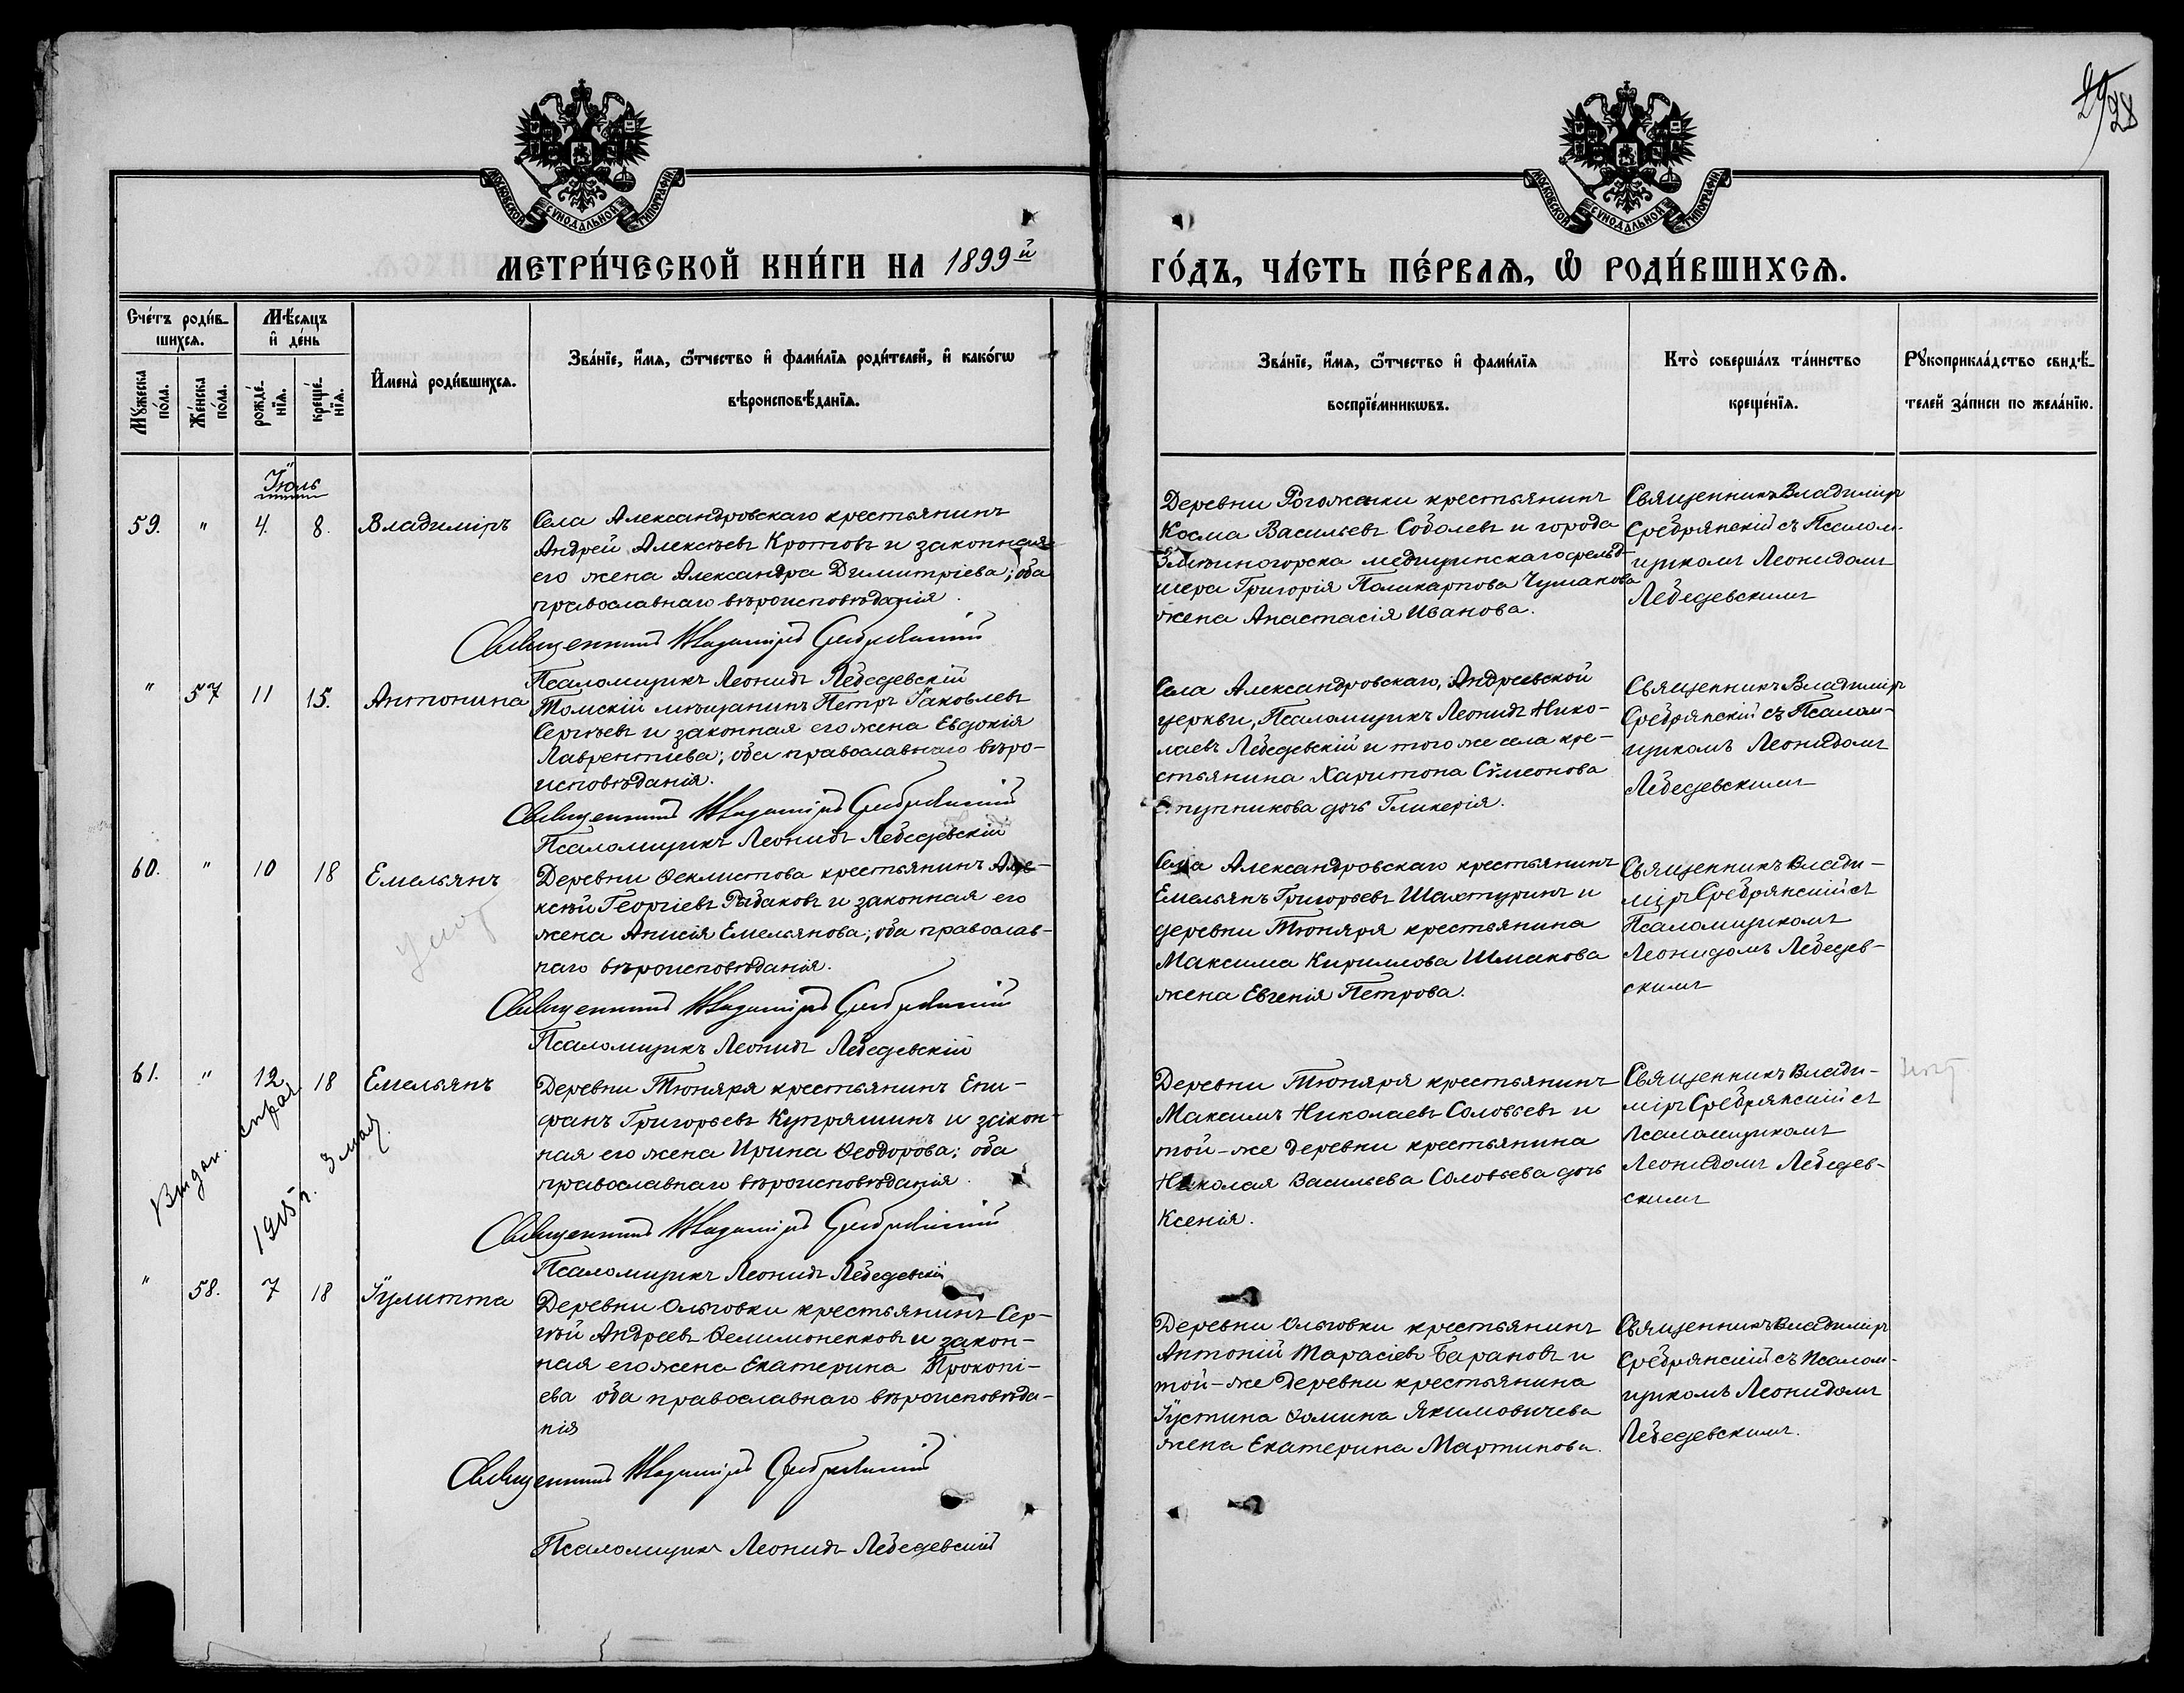 29 28
МОСКОВСКОЙ СѴНОДАЛЬНОЙ ТИПОГРАФІИ
МОСКОВСКОЙ СѴНОДАЛЬНОЙ ТИПОГРАФІИ
МЕТРИ́ЧЕСКОЙ КНИ́ГИ НА 1899й
ГО́ДЪ, ЧА́СТЬ ПЕ́РВАѦ, Ѽ РОДИ́ВШИХСѦ.
Сче́тъ роди́в-
шихсѧ.
Мꙋжеска по́ла.
Же́нска по́ла.
Мѣ́сѧцъ
и҆ де́нь
рожде́-
нїѧ.
креще́-
нїѧ.
И҆мена̀ роди́вшихсѧ.
Зва́нїе, и҆́мѧ, ѻ҆́тчество и҆ фами́лїѧ роди́телей, и҆ како́гѡ
вѣроисповѣ́данїѧ.
Зва́нїе, и҆́мѧ, ѻ҆́тчество и҆ фами́лїѧ
воспрїе́мникѡвъ.
Кто̀ соверша́лъ та́инство
креще́нїѧ.
Рꙋкоприкла́дство свидѣ́-
телей за́писи по жела́нїю.
Іюль
59. " 4. 8. Владиміръ
Села Александровскаго крестьянинъ
Андрей Алексѣевъ Кротовъ и законная
его жена Александра Димитріева; оба
православнаго вѣроисповѣданія.
Священникъ Владиміръ Сребрянскій
Псаломщикъ Леонидъ Лебедевскій
Деревни Рогожки крестьянинъ
Косма Васильевъ Соболевъ и города
Змѣиногорска медицинскаго фельд-
шера Григорія Поликарпова Чумакова
жена Анастасія Иванова.
Священникъ Владиміръ
Сребрянскій съ Псалом-
щикомъ Леонидомъ
Лебедевскимъ
" 57 11 15. Антонина
Томскій мѣщанинъ Петръ Іаковлевъ
Сергѣевъ и законная его жена Евдокія
Лаврентіева; оба православнаго вѣро-
исповѣданія.
Священникъ Владиміръ Сребрянскій
Псаломщикъ Леонидъ Лебедевскій
Села Александровскаго, Андреевской
церкви, Псаломщикъ Леонидъ Нико-
лаевъ Лебедевскій и того же села кре-
стьянина Харитона Сѵмеонова
Ступникова дочь Гликерія.
Священникъ Владиміръ
Сребрянскій съ Псалом-
щикомъ Леонидомъ
Лебедевскимъ
60. " 10 18 Емельянъ
Деревни Ѳеклистова крестьянинъ Але-
ксѣй Георгіевъ Рыбаковъ и законная его
жена Анисія Емельянова; оба православ-
наго вѣроисповѣданія.
Священникъ Владиміръ Сребрянскій
Псаломщикъ Леонидъ Лебедевскій
Села Александровскаго крестьянинъ
Емельянъ Григорьевъ Шахтуринъ и
деревни Тюняря крестьянина
Максима Кириллова Шмакова
жена Евгенія Петрова.
Священникъ Влади-
міръ Сребрянскій съ
Псаломщикомъ
Леонидомъ Лебедев-
скимъ
61. " 12 18 Емельянъ
Деревни Тюняря крестьянинъ Епи-
фанъ Григорьевъ Купряшинъ и закон-
ная его жена Ирина Ѳеодорова; оба
православнаго вѣроисповѣданія.
Священникъ Владиміръ Сребрянскій
Псаломщикъ Леонидъ Лебедевскій
Деревни Тюняря крестьянинъ
Максимъ Николаевъ Соловьевъ и
той-же деревни крестьянина
Николая Васильева Соловьева дочь
Ксенія.
Священникъ Влади-
міръ Сребрянскій съ
Псаломщикомъ
Леонидомъ Лебедев-
скимъ
1915 г. 3 мая.
" 58. 7 18 Іулитта
Деревни Ольговки крестьянинъ Сер-
гѣй Андреевъ Ѳелимоненковъ и закон-
ная его жена Екатерина Прокопі-
ева оба православнаго вѣроисповѣда-
нія
Священникъ Владиміръ Сребрянскій
Псаломщикъ Леонидъ Лебедевскій
Деревни Ольговки крестьянинъ
Антоній Тарасіевъ Барановъ и
той-же деревни крестьянина
Іустина Ѳомина Якимовичева
жена Екатерина Мартинова.
Священникъ Владиміръ
Сребрянскій съ Псалом-
щикомъ Леонидомъ
Лебедевскимъ.